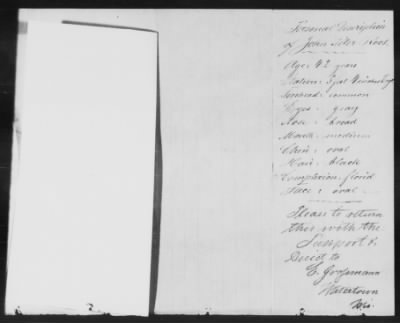 Personal Description
of John Peter Koos.
Age: 42 years
Stature: 5 feet
Forehead: common
Eyes: gray
Nose: broad
Mouth: medium
Chin: oval
Hair: black
Complexion: florid
Face: oval
Please to return
this with the
Passport &
to
E. Grossmann
Watertown
Wis.